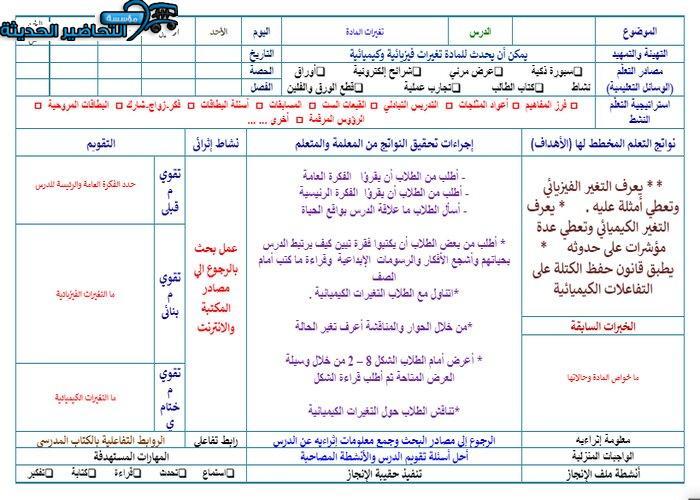 مؤسسة
التحاضير الحديثة
الموضوع
الدرس
تغيرات المادة
اليوم
الأحد
التهيئة والتمهيد
يمكن أن يحدث للمادة تغيرات فيزيائية وكيميائية
التاريخ
مصادر التعلم
(الوسائل التعليمية)
سبورة ذكية
عرض مرئي
شرائح إلكترونية
أوراق
نشاط
كتاب الطالب
تجارب عملية
قطع الورق والفلين
الحصة
الفصل
استراتيجية التعلم
النشط
فرز المفاهيم
أعواد المثلجات
التدريس التبادلي
القبعات الست
المسابقات
أسئلة البطاقات
فكر-زواج-شارك
البطاقات المروحية
الرؤوس المرقمة
أخرى ... ...
نواتج التعلم المخطط لها (الأهداف)
إجراءات تحقيق النواتج من المعلمة والمتعلم
نشاط إثرائى
التقويم
** يعرف التغير الفيزيائي
وتعطي أمثلة عليه . * يعرف
التغير الكيميائي وتعطي عدة
مؤشرات على حدوثه *
يطبق قانون حفظ الكتلة على
التفاعلات الكيميائية
الخبرات السابقة
ما خواص المادة وحالاتها
- أطلب من الطلاب أن يقرؤا الفكرة العامة
- أطلب من الطلاب أن يقرؤا الفكرة الرئيسية
- أسأل الطلاب ما علاقة الدرس بواقع الحياة
* أطلب من بعض الطلاب أن يكتبوا فقرة تبين كيف يرتبط الدرس
بحياتهم وأشجع الأفكار والرسومات الإبداعية وقراءة ما كتب أمام
الصف
*اتناول مع الطلاب التغيرات الكيميائية .
*من خلال الحوار والمناقشة أعرف تغير الحالة
* أعرض أمام الطلاب الشكل 8 – 2 من خلال وسيلة
العرض المتاحة ثم أطلب قراءة الشكل
*تناقش الطلاب حول التغيرات الكيميائية
عمل بحث
بالرجوع الي
مصادر
المكتبة
والانترنت
تقوي
م
قبلى
حدد الفكرة العامة والرئيسة للدرس
تقوي
م
بنائى
ما التغيرات الفيزيائية
تقوي
م
ختام
ي
ما التغيرات الكيميائية
معلومة إثرائيه
الرجوع إلي مصادر البحث وجمع معلومات إثرائيه عن الدرس
رابط تفاعلى
الروابط التفاعلية بالكتاب المدرسى
الواجبات المنزلية
أحل أسئلة تقويم الدرس والأنشطة المصاحبة
المهارات المستهدفة
أنشطة ملف الإنجاز
تنفيذ حقيبة الإنجاز
استماع
تحدث
قراءة
كتابة
تفكير